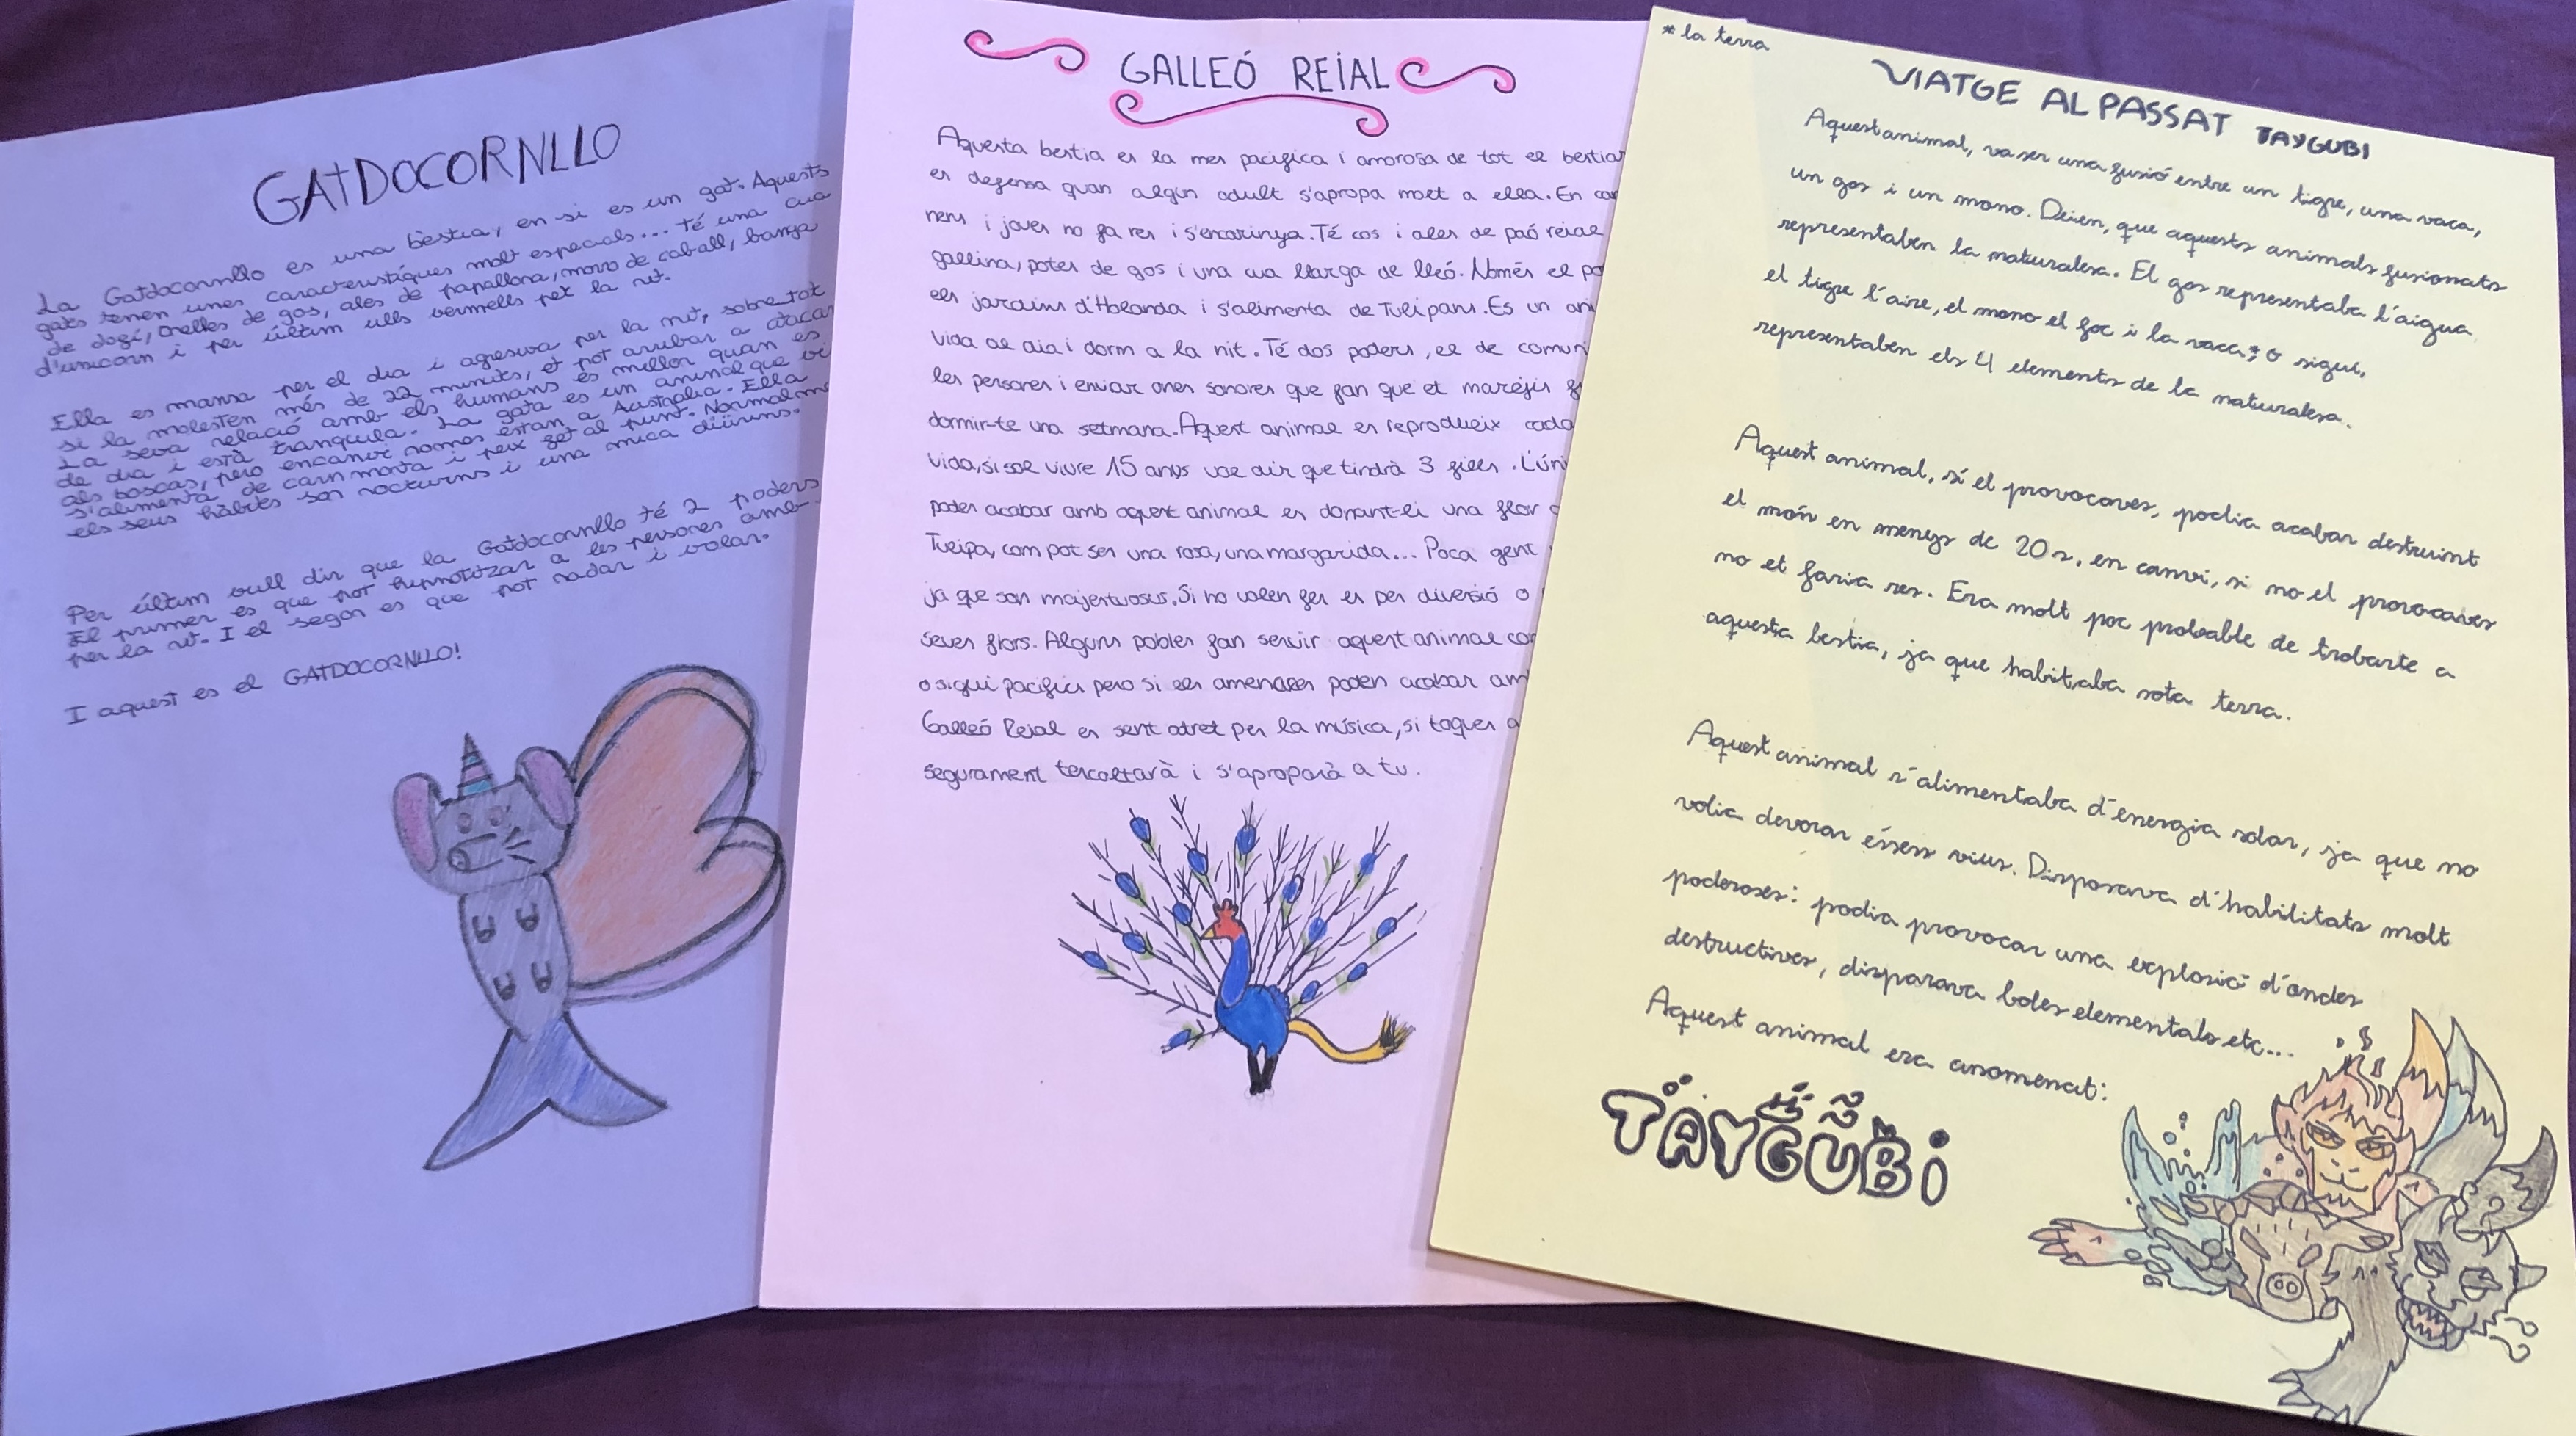 GATDOCORNLLO
La Gatdocornllo es una bèstia, en si es un gat. Aquests
gats tenen unes característiques molt especials... té una cua
de dogí, orelles de gos, ales de papallona, morro de caball, banya
d'unicorn i per últim ulls vermells per la nit.
Ella es mansa per el dia i agresiva per la nit, sobretot
si la molesten més de 22 minuts, et pot arribar a atacar
La seva relació amb els humans és millor quan es
de dia i està tranquila. La gata es un animal que vi
als boscas, pero encanvi nomes estan a Australia. Ella
s'alimenta de carn morta i peix fet al punt. Normalme
els seus hàbits son nocturns i una mica diürns.
Per últim vull dir que la Gatdocornllo té 2 poders
El primer es que pot hipnotitzar a les persones amb
per la nit. I el segon es que pot nadar i volar.
I aquest es el GATDOCORNLLO!
GALLEÓ REIAL
Aquesta bestia es la mes pacifica i amorosa de tot el bestiar
es defensa quan algun adult s'apropa molt a ella. En can
nens i joves no fa res i s'encarinya. Té cos i ales de paó reial
gallina, potes de gos i una cua llarga de lleó. Només el po
els jardins d'Holanda i s'alimenta de Tulipans. Es un ani
vida de dia i dorm a la nit. Té dos poders, el de comuni
les persones i enviar ones sonores que fan que et marejis
dormir-te una setmana. Aquest animal es reprodueix cada
vida, si sol viure 15 anys vol dir que tindrà 3 filles. L'úni
poder acabar amb aquest animal es donant-li una flor
Tulipa, com pot ser una rosa, una margarida... Poca gent
ja que son majestuosus. Si ho volen fer es per diversió o
seves flors. Alguns pobles fan servir aquest animal com
o sigui pacifics pero si els amenacen poden acabar am
Galleó Reial es sent atret per la música, si toques a
segurament tescoltarà i s'aproparà a tu.
* la terra
VIATGE AL PASSAT TAYGUBI
Aquest animal, va ser una fusió entre un tigre, una vaca,
un gos i un mono. Deien, que aquests animals fusionats
representaben la naturalesa. El gos representaba l'aigua
el tigre l'aire, el mono el foc i la vaca* o sigui,
representaben els 4 elements de la naturalesa.
Aquest animal, sí el provocaves, podia acabar destruint
el món en menys de 20 s, en canvi, si no el provocaves
no et faria res. Era molt poc probable de trobarte a
aquesta bestia, ja que habitaba sota terra.
Aquest animal s'alimentaba d'energia solar, ja que no
volia devorar éssers vius. Disposava d'habilitats molt
poderoses: podia provocar una explosió d'ondes
destructives, disparava boles elementals etc...
Aquest animal era anomenat:
TAYGUBI